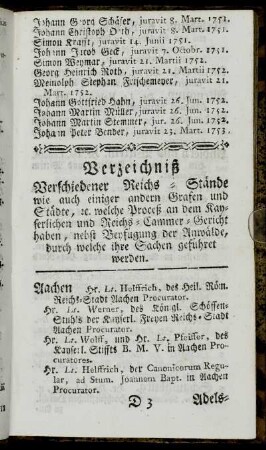 Johann Georg Schäfer, juravit 8. Mart. 1752.
Johann Christoph Dieth, juravit 8. Mart. 1751.
Simon Krafft, juravit 14. Junii 1751.
Johann Jacob Geck, juravit 7. Octobr. 1751.
Simon Weymar, juravit 21. Martii 1752.
Georg Heinrich Roth, juravit 21. Martii 1752.
Meinolph Stephan Fritschemeyer, juravit 21.
Mart. 1752.
Johann Gottfried Hahn, juravit 26. Jun. 1752.
Johann Martin Müller, juravit 26. Jun. 1752.
Johann Martin Stemmer, jur. 26. Jun. 1752.
Johann Peter Bender, juravit 23. Mart. 1753.
Verzeichniß
Verschiedener Reichs-Stände
wie auch einiger andern Grafen und
Städte, ꝛc. welche Proceß an dem Kay-
serlichen und Reichs-Cammer-Gericht
haben, nebst Beyfügung der Anwälde,
durch welche ihre Sachen geführet
werden.
Aachen Hr. Lt. Helffrich, des Heil. Röm.
Reichs-Stadt Aachen Procurator.
Hr. Lt. Werner, des Königl. Schöffen-
Stuhls der Kayserl. Freyen Reichs-Stadt
Aachen Procurator.
Hr. Lt. Wolff, und Hr. Lt. Pfeiffer, des
Kayserl. Stiffts B. M. V. in Aachen Pro-
curatores.
Hr. Lt. Helffrich, der Canonicorum Regu-
lar, ad Stum. Joannem Bapt. in Aachen
Procurator.
D 3 Adels-